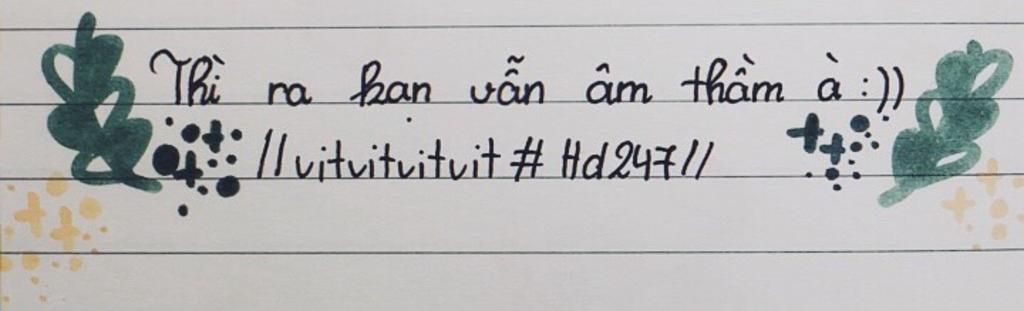 Thì ra bạn vẫn âm thầm à :))
//vitvitvitvit # Hd247//